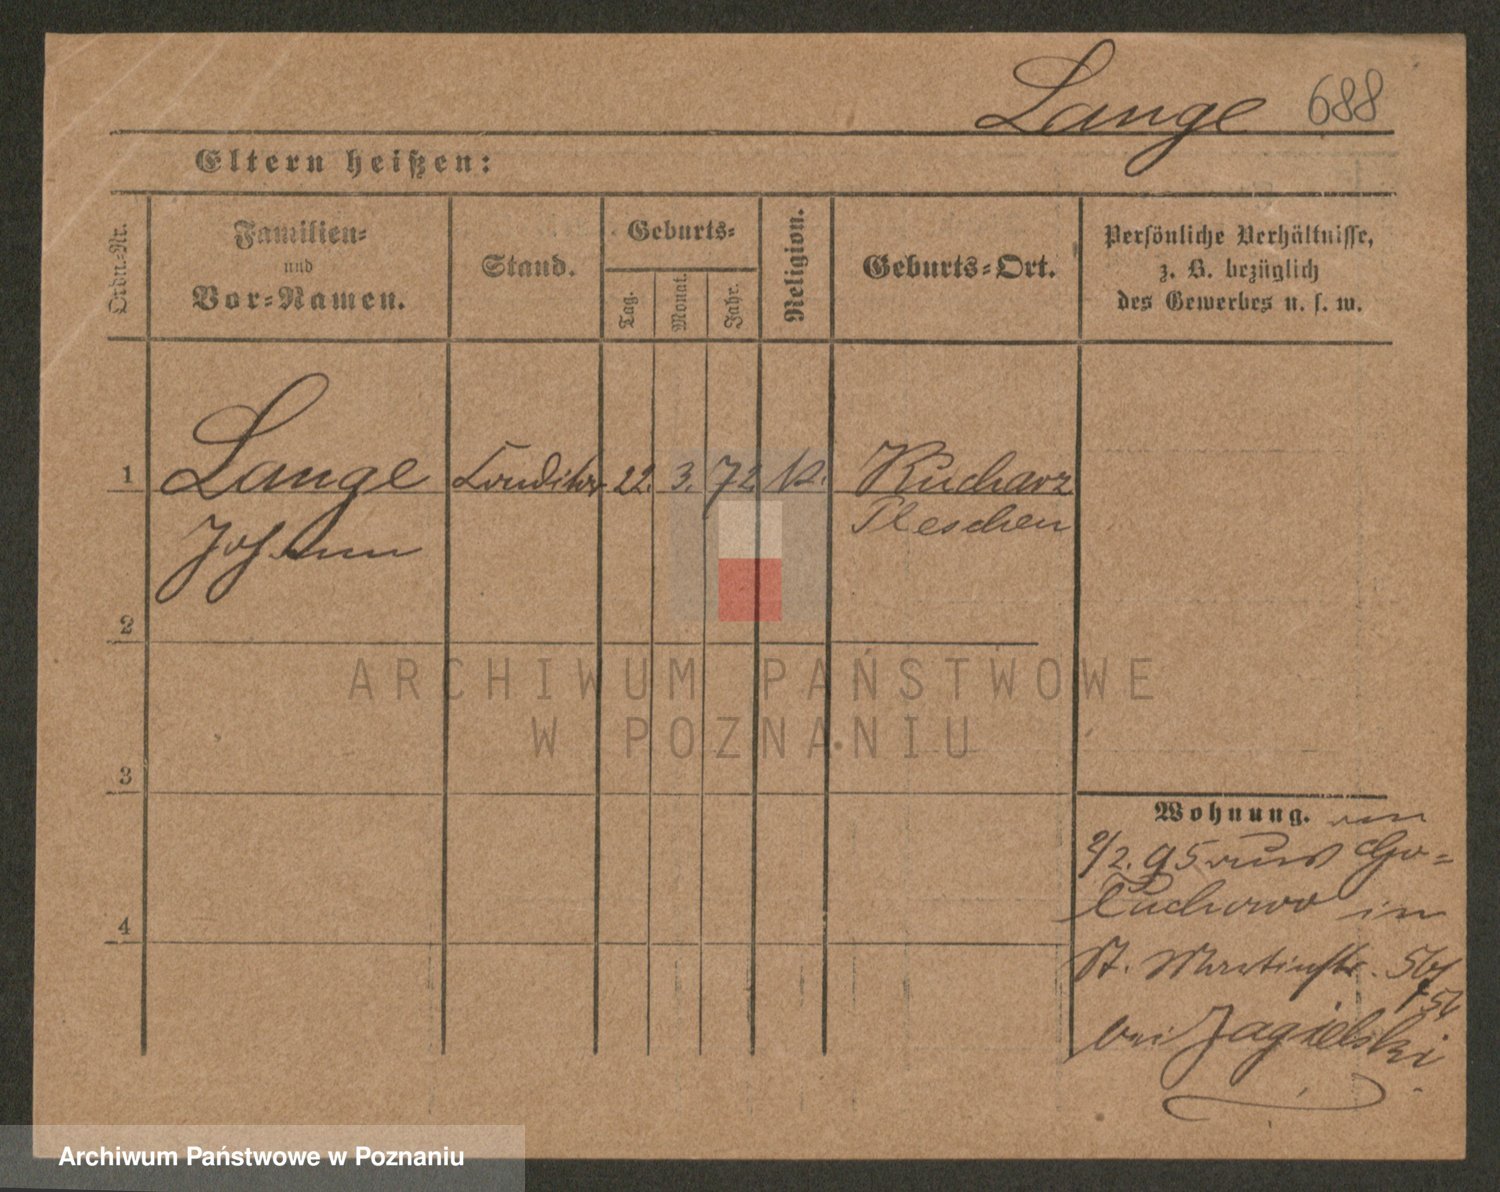 Lange 688
Eltern heißen:
Ordn.-Nr.
Familien-
und
Vor-Namen.
Stand.
Geburts-
Tag.
Monat.
Jahr.
Religion.
Geburts-Ort.
Persönliche Verhältnisse,
z. B. bezüglich
des Gewerbes u. s. w.
1 Lange Conditor 22. 3. 72 k. Kucharz
Pleschen
Johann
2
ARCHIWUM PAŃSTWOWE
W POZNANIU
3
Wohnung. am
2/2. 95 aus Go-
luchowo in
4
St. Martinstr. 56
bei Jagielski
Archiwum Państwowe w Poznaniu